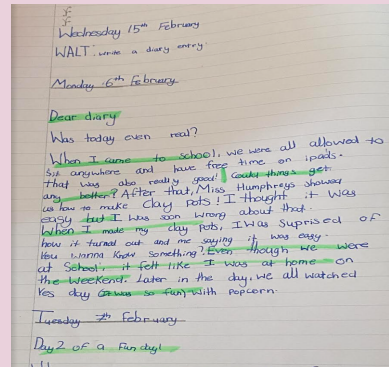 Wednesday 15th February
WALT: write a diary entry
Monday 6th February
Dear diary
Was today even real?
When I came to school, we were all allowed to
Sit anywhere and have free time on ipads.
that was also really good! Could things get
any better? After that, Miss Humphreys showed
us how to make clay pots! I thought it was
easy but I was soon wrong about that.
When I made my clay pots, I was Suprised of
how it turned out and me saying it was easy.
You wanna know something? Even though we were
at School, it felt like I was at home on
the weekend. Later in the day, we all watched
Yes day (It was so fun) with popcorn.
Tuesday 7th February
Day 2 of a fun day!